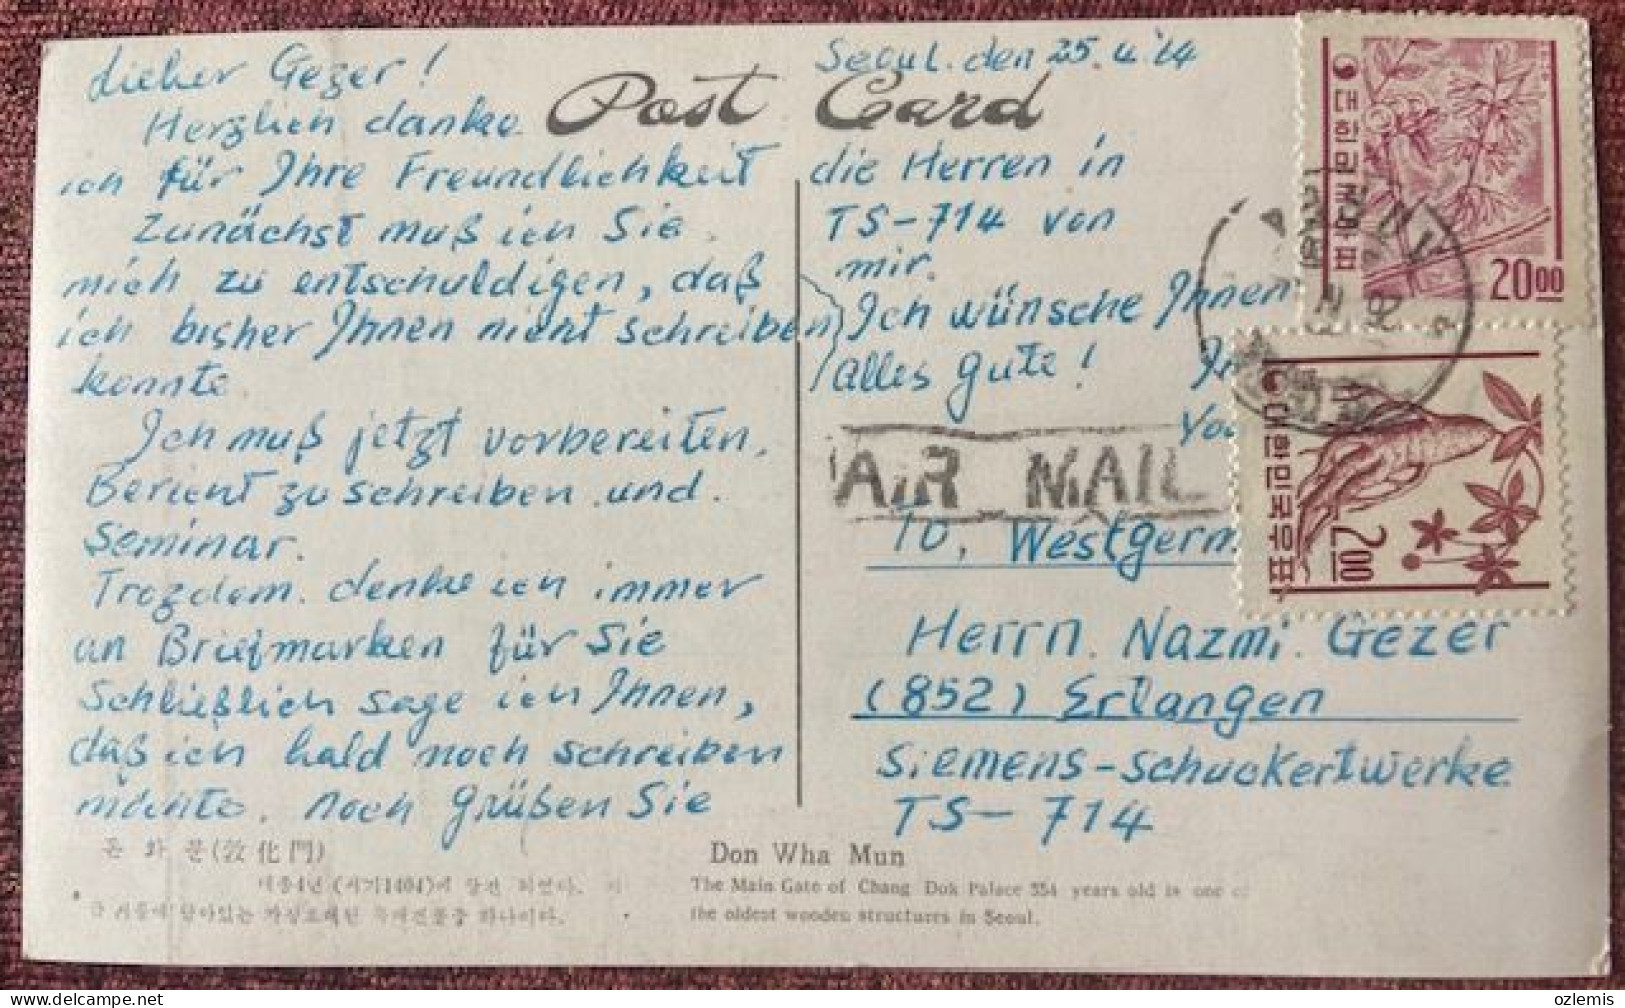 Lieber Gezer!
Herzlich danke
ich für Ihre Freundlichkeit
Zunächst muß ich Sie
mich zu entschuldigen, daß
ich bisher Ihnen nicht schreiben
konnte.
Ich muß jetzt vorbereiten,
Bericht zu schreiben und
Seminar.
Trozdem denke ich immer
an Briefmarken für Sie
Schließlich sage ich Ihnen,
daß ich bald noch schreiben
möchte. noch grüßen Sie
Post Card
Seoul. den 25. 4.
die Herren in
TS-714 von
mir.
Ich wünsche Ihnen
alles gute!
AIR MAIL
To, Westgerm
Herrn. Nazmi. Gezer
(852) Erlangen
Siemens-Schuckertwerke
TS-714
대한민국우표
20.00
대한민국우표
2.00
돈화문(敦化門)
태종4년(서기1404)에
Don Wha Mun
The Main Gate of Chang Dok Palace 354 years old is one
the oldest wooden structures in Seoul.
ozlemis